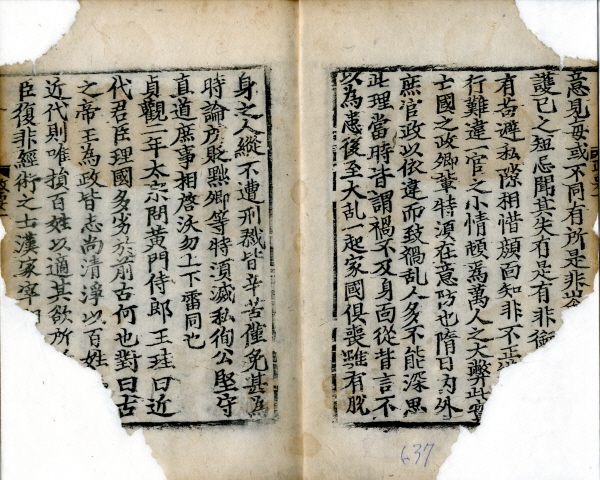 意見每或不同有所是非
護已之短忌聞其失有是有非銜
有苟避私隙相惜顔面知非不正
行難違一官之小情頓爲萬人之大弊此實
士國之政卿輩特須在意防也隋日內外
庶官政以依違而致禍乱人多不能深思
此理當時皆謂禍不及身面從背言不
以為患後至大乱一起家國俱喪雖有脫
身之人縱不遭刑戮皆辛苦僅免甚為
時論所貶黜卿等特須滅私徇公堅守
直道庶事相啓沃勿上下雷同也
貞觀二年太宗問黃門侍郎王珪曰近
代君臣理國多劣於前古何也對曰古
之帝王為政皆志尚清淨以百姓
近代則唯損百姓以適其欲所
臣復非經術之士漢家宰
637